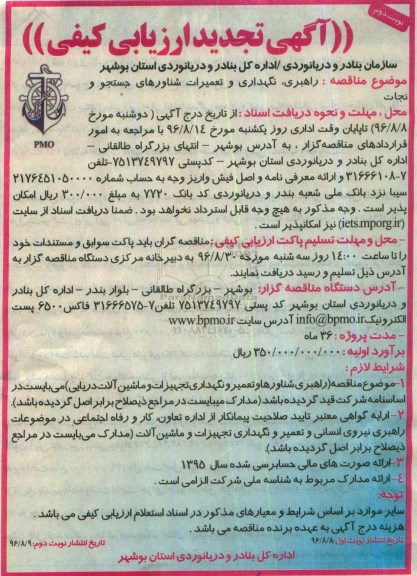 نوبت دوم
((آگهی تجدید ارزیابی کیفی))
سازمان بنادر و دریانوردی /اداره کل بنادر و دریانوردی استان بوشهر
موضوع مناقصه : راهبری، نگهداری و تعمیرات شناورهای جستجو و
نجات
محل ، مهلت و نحوه دریافت اسناد : از تاریخ درج آگهی ( دوشنبه مورخ
۹۶/۸/۸) تاپایان وقت اداری روز یکشنبه مورخ ۹۶/۸/۱۴ با مراجعه به امور
قراردادهای مناقصه گزار ، به آدرس بوشهر - انتهای بزرگراه طالقانی -
اداره کل بنادر و دریانوردی استان بوشهر – کدپستی ۷۵۱۳۷۴۹۷۹۷-تلفن
۷-۳۱۶۶۶۱۰۸ و ارائه معرفی نامه و اصل فیش واریز وجه به حساب شماره ۲۱۷۶۴۵۱۰۵۰۰۰۰
سیبا نزد بانک ملی شعبه بندر و دریانوردی کد بانک ۷۷۲۰ به مبلغ ۳۰۰/۰۰۰ ریال امکان
پذیر است . وجه مذکور به هیچ وجه قابل استرداد نخواهد بود . ضمنا دریافت اسناد از سایت
(iets.mporg.ir) نیز امکانپذیر است .
- محل و مهلت تسلیم پاکت ارزیابی کیفی : مناقصه گران باید پاکت سوابق و مستندات خود
را تا ساعت ۱۴:۰۰ روز سه شنبه مورخه ۹۶/۸/۳۰ به دبیرخانه مرکزی دستگاه مناقصه گزار به
آدرس ذیل تسلیم و رسید دریافت نمایند.
- آدرس دستگاه مناقصه گزار: بوشهر - بزرگراه طالقانی - بلوار بندر - اداره کل بنادر
و دریانوردی استان بوشهر کد پستی ۷۵۱۳۷۴۹۷۹۷ تلفن۷-۳۱۶۶۶۵۷۵ فاکس۶۵۰۰ پست
الکترونیکinfo@bpmo.ir آدرس سایت www.bpmo.ir
- مدت پروژه : ۳۶ ماه
برآورد اولیه : ۳۵۰/۰۰۰/۰۰۰/۰۰۰ ریال
شرایط لازم :
۱-موضوع مناقصه (راهبری شناورها و تعمیر و نگهداری تجهیزات و ماشین آلات دریایی) می بایست در
اساسنامه شرکت قید گردیده باشد (مدارک میبایست در مراجع ذیصلاح برابر اصل گردیده باشد).
۲- ارایه گواهی معتبر تایید صلاحیت پیمانکار از اداره تعاون، کار و رفاه اجتماعی در موضوعات
راهبری نیروی انسانی و تعمیر و نگهداری تجهیزات و ماشین آلات (مدارک می‌بایست در مراجع
ذیصلاح برابر اصل گردیده باشد).
۳-ارائه صورت های مالی حسابرسی شده سال ۱۳۹۵
۴- ارائه مدارک مربوط به شناسه ملی شرکت الزامی است .
توجه:
سایر موارد بر اساس شرایط و معیارهای مذکور در اسناد استعلام ارزیابی کیفی می باشد .
هزینه درج آگهی به عهده برنده مناقصه می باشد .
تاریخ انتشار نوبت اول ۹۶/۸/۸ تاریخ انتشار نوبت دوم: ۹۶/۸/۹
اداره کل بنادر و دریانوردی استان بوشهر
PMO